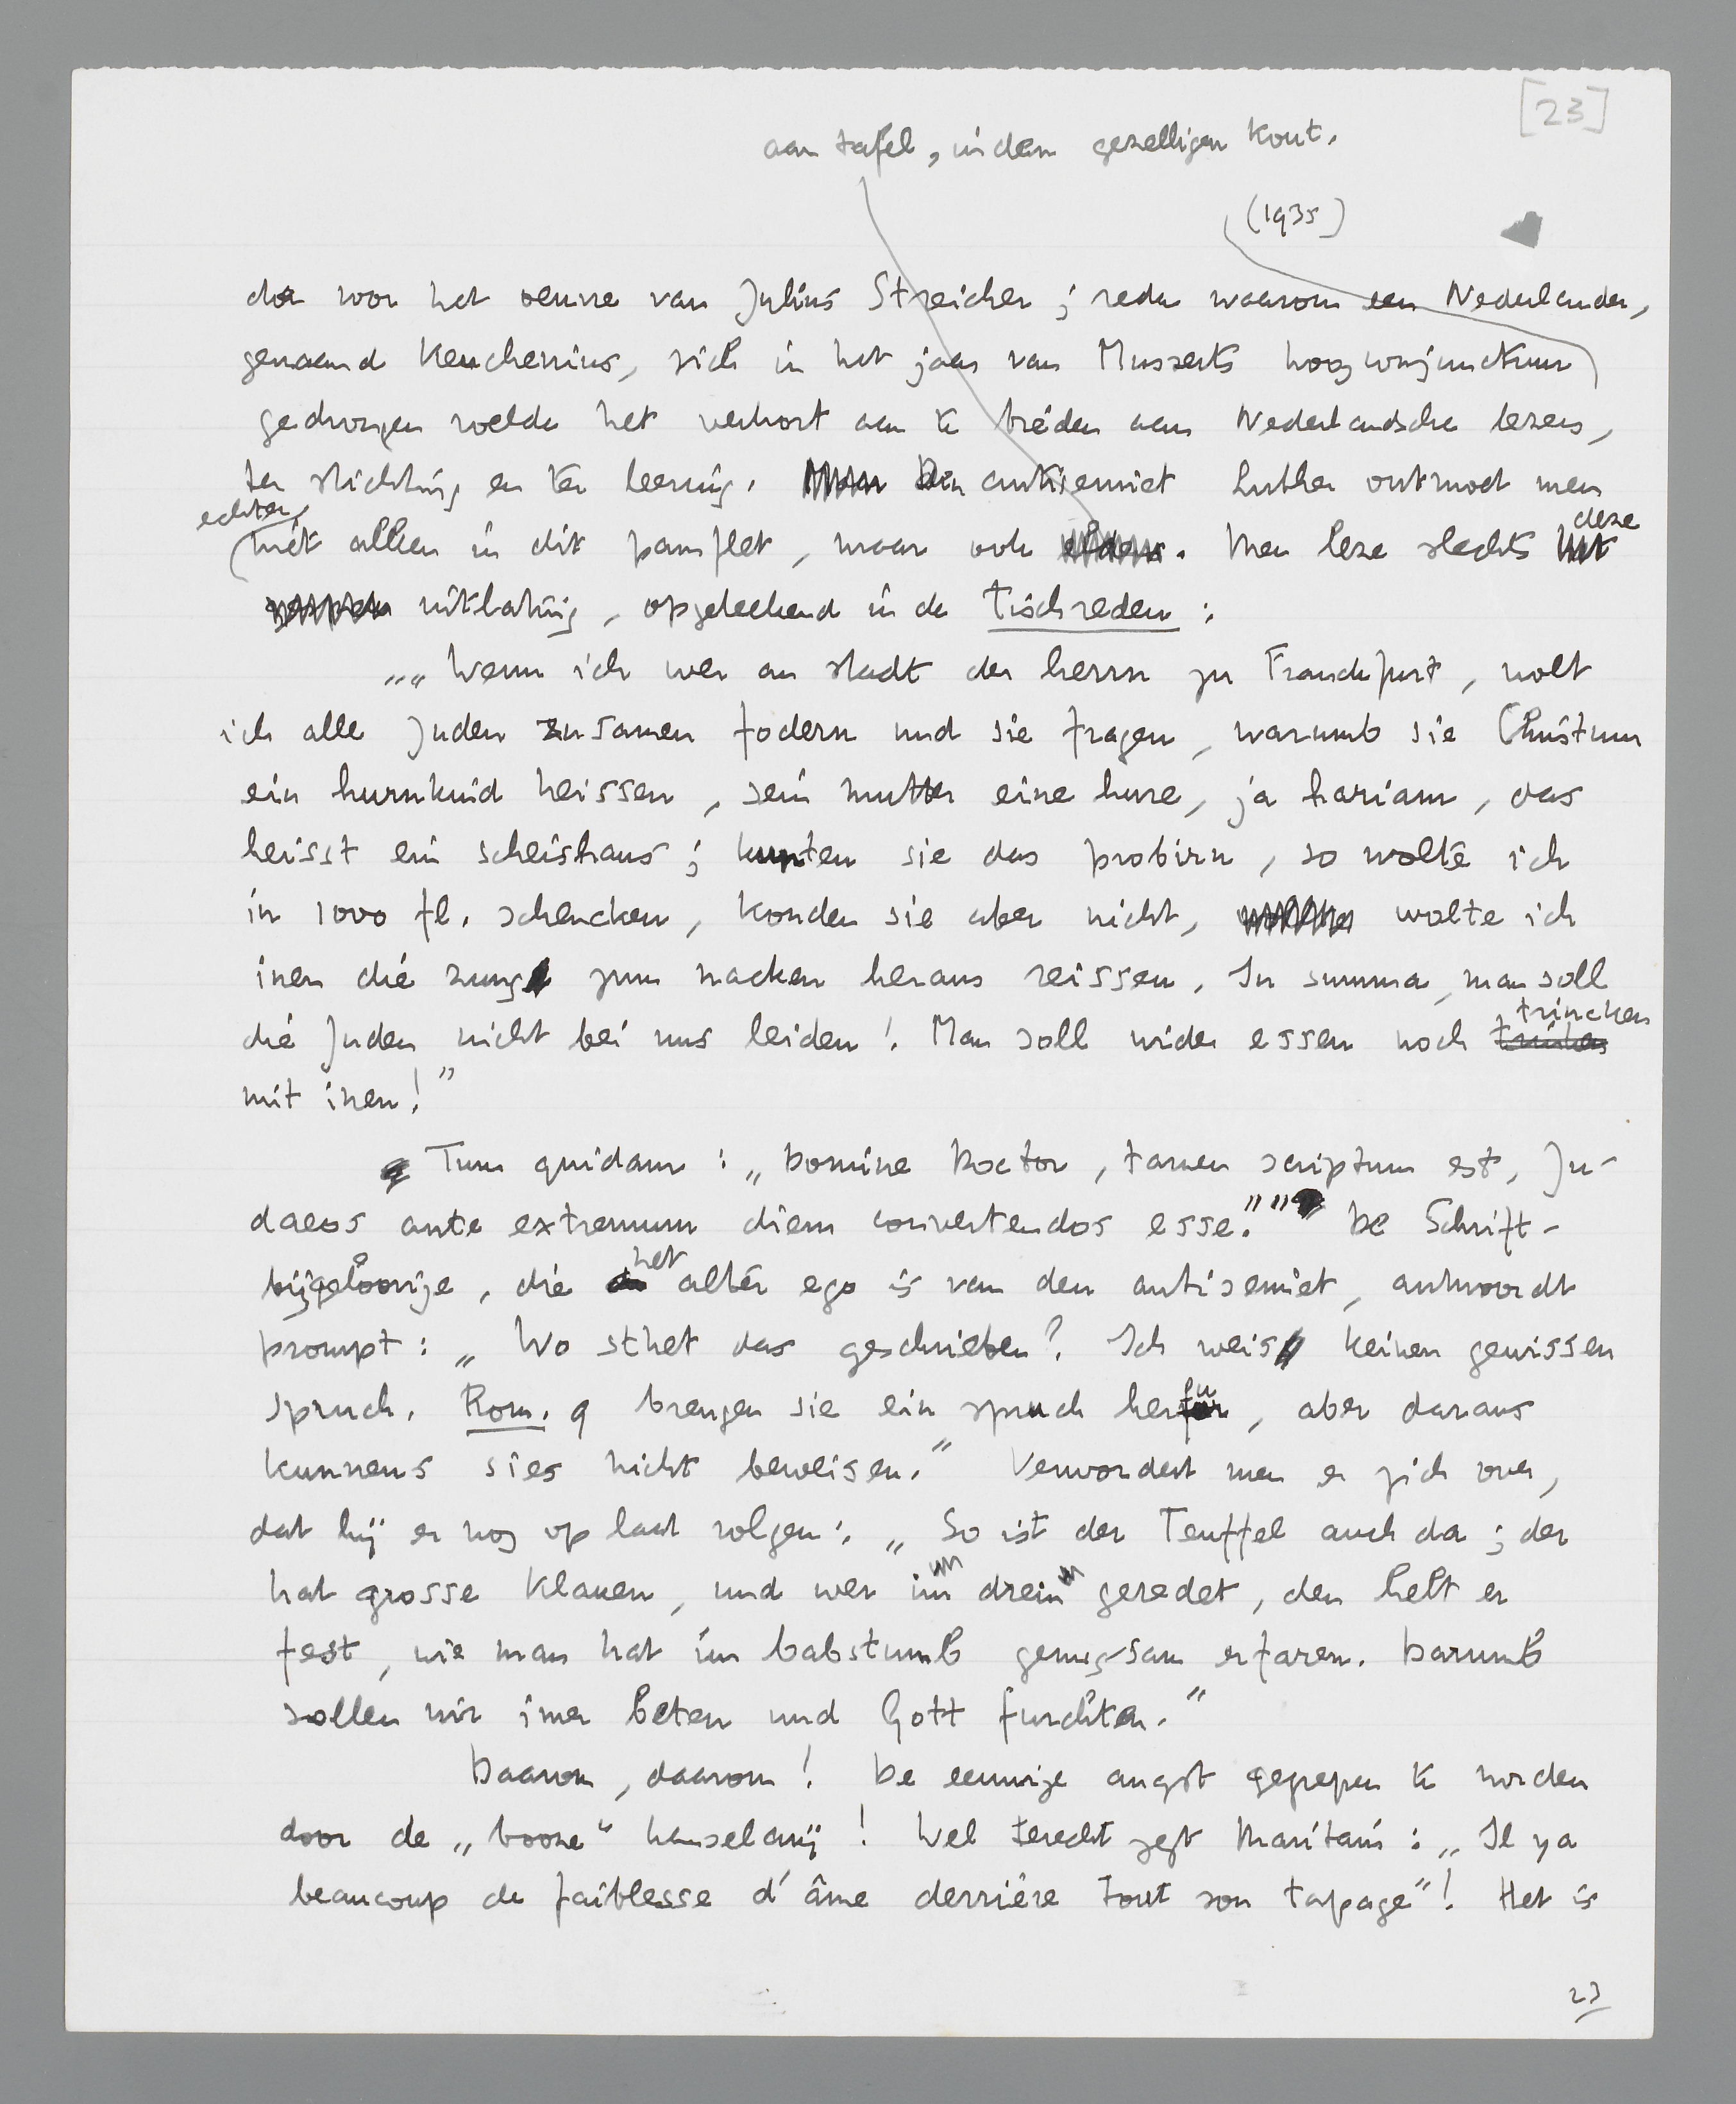 [23]
aan tafel, in den gezelligen kout.
(1935)
der voor het oeuvre van Julius Streicher; reden waarom een Nederlander,
genaamd Keuchenius, zich in het jaar van Musserts hoogconjunctuur
gedrongen voelde het vehort aan te bieden aan Nederlandsche lezers,
ter stichting en ter leering. Den antisemiet Luther ontmoet men
echter
niet alleen in dit pamflet, maar ook elders. Men leze slechts deze
uitlating, opgeteekend in de Tischreden:
„„Wenn ich wer an stadt der herrn zu Franckfurt, wolt
ich alle Juden zusamen fodern und sie fragen, warumb sie Christum
ein hurnkind heissen, sein mutter eine hure, ja hariam, das
heisst ein scheishaus; kunten sie das probirn, so wolte ich
in 1000 fl. schencken, konden sie aber nicht, wolte ich
inen die zung zum nacken heraus reissen. In summa, man soll
die Juden nicht bei uns leiden! Man soll wider essen noch trincken
mit inen!”
Tum quidam: „Domine Doctor, tamen scriptum est, Ju-
daeos ante extremum diem convertendos esse.”” De Schrift-
bijgeloovige, die het alter ego is van den antisemiet, antwoordt
prompt: „Wo sthet das geschrieben? Ich weis keinen gewissen
spruch. Rom. 9 brengen sie ein spruch herfu, aber daraus
kunnens sies nicht beweisen.” Verwondert men er zich over,
dat hij er nog op laat volgen: „So ist der Teuffel auch da; der
hat grosse Klauen, und wer im drein geredet, den helt er
fest, wie man hat im babstumb genugsam erfaren. Darumb
sollen wir imer beten und Gott furchten.”
Daarom, daarom! De eeuwige angst gegrepen te worden
door de „booze” hanselarij! Wel terecht zegt Maritain: „Il y a
beaucoup de faiblesse d'âme derrière tout son tapage”! Het is
23